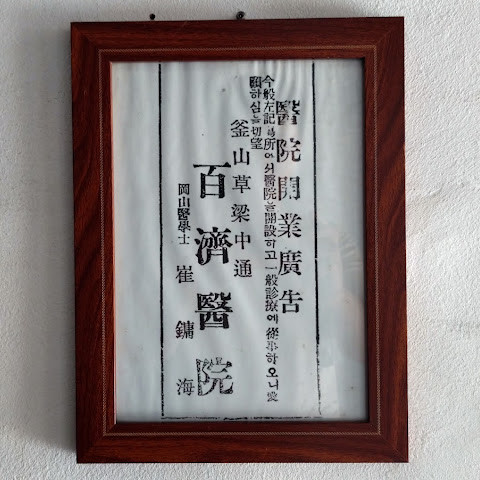 醫院開業廣告
今般左記場所에셔醫院을開設하고一般診療에從事하오니愛
顧하심을切望
釜山草梁中通
百濟醫院
岡山醫學士 崔鏞海